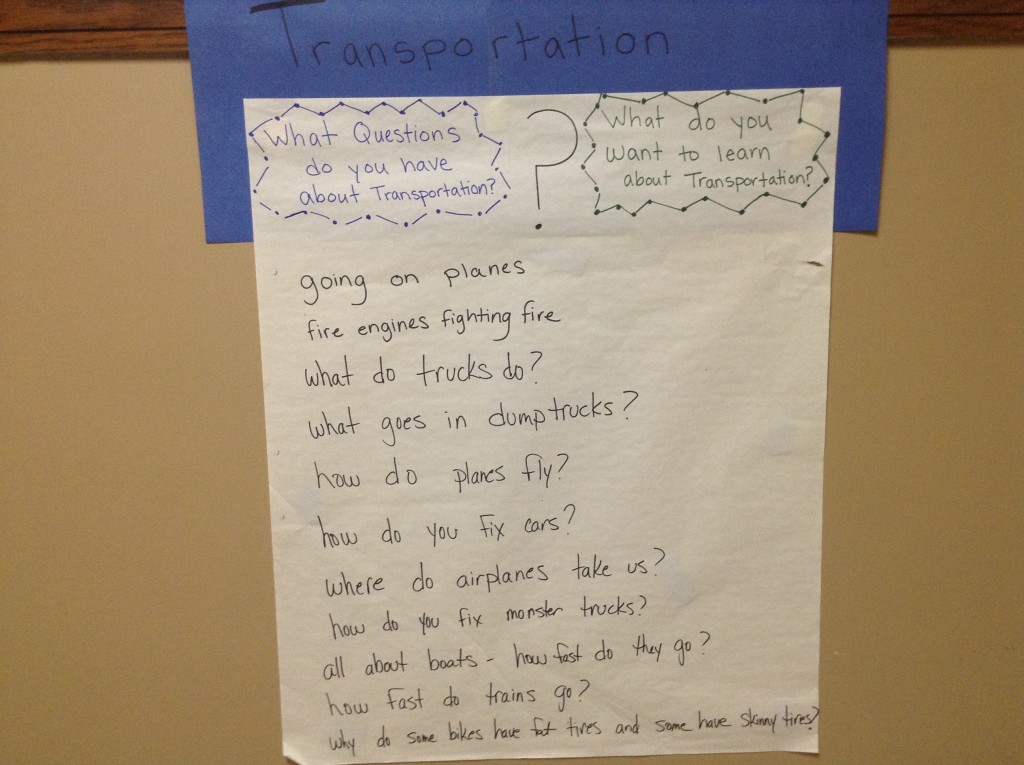 Transportation
What Questions
do you have
about Transportation?
?
What do you
want to learn
about Transportation?
going on planes
fire engines fighting fire
what do trucks do?
what goes in dumptrucks?
how do planes fly?
how do you fix cars?
where do airplanes take us?
how do you fix monster trucks?
all about boats - how fast do they go?
how fast do trains go?
why do some bikes have fat tires and some have skinny tires?